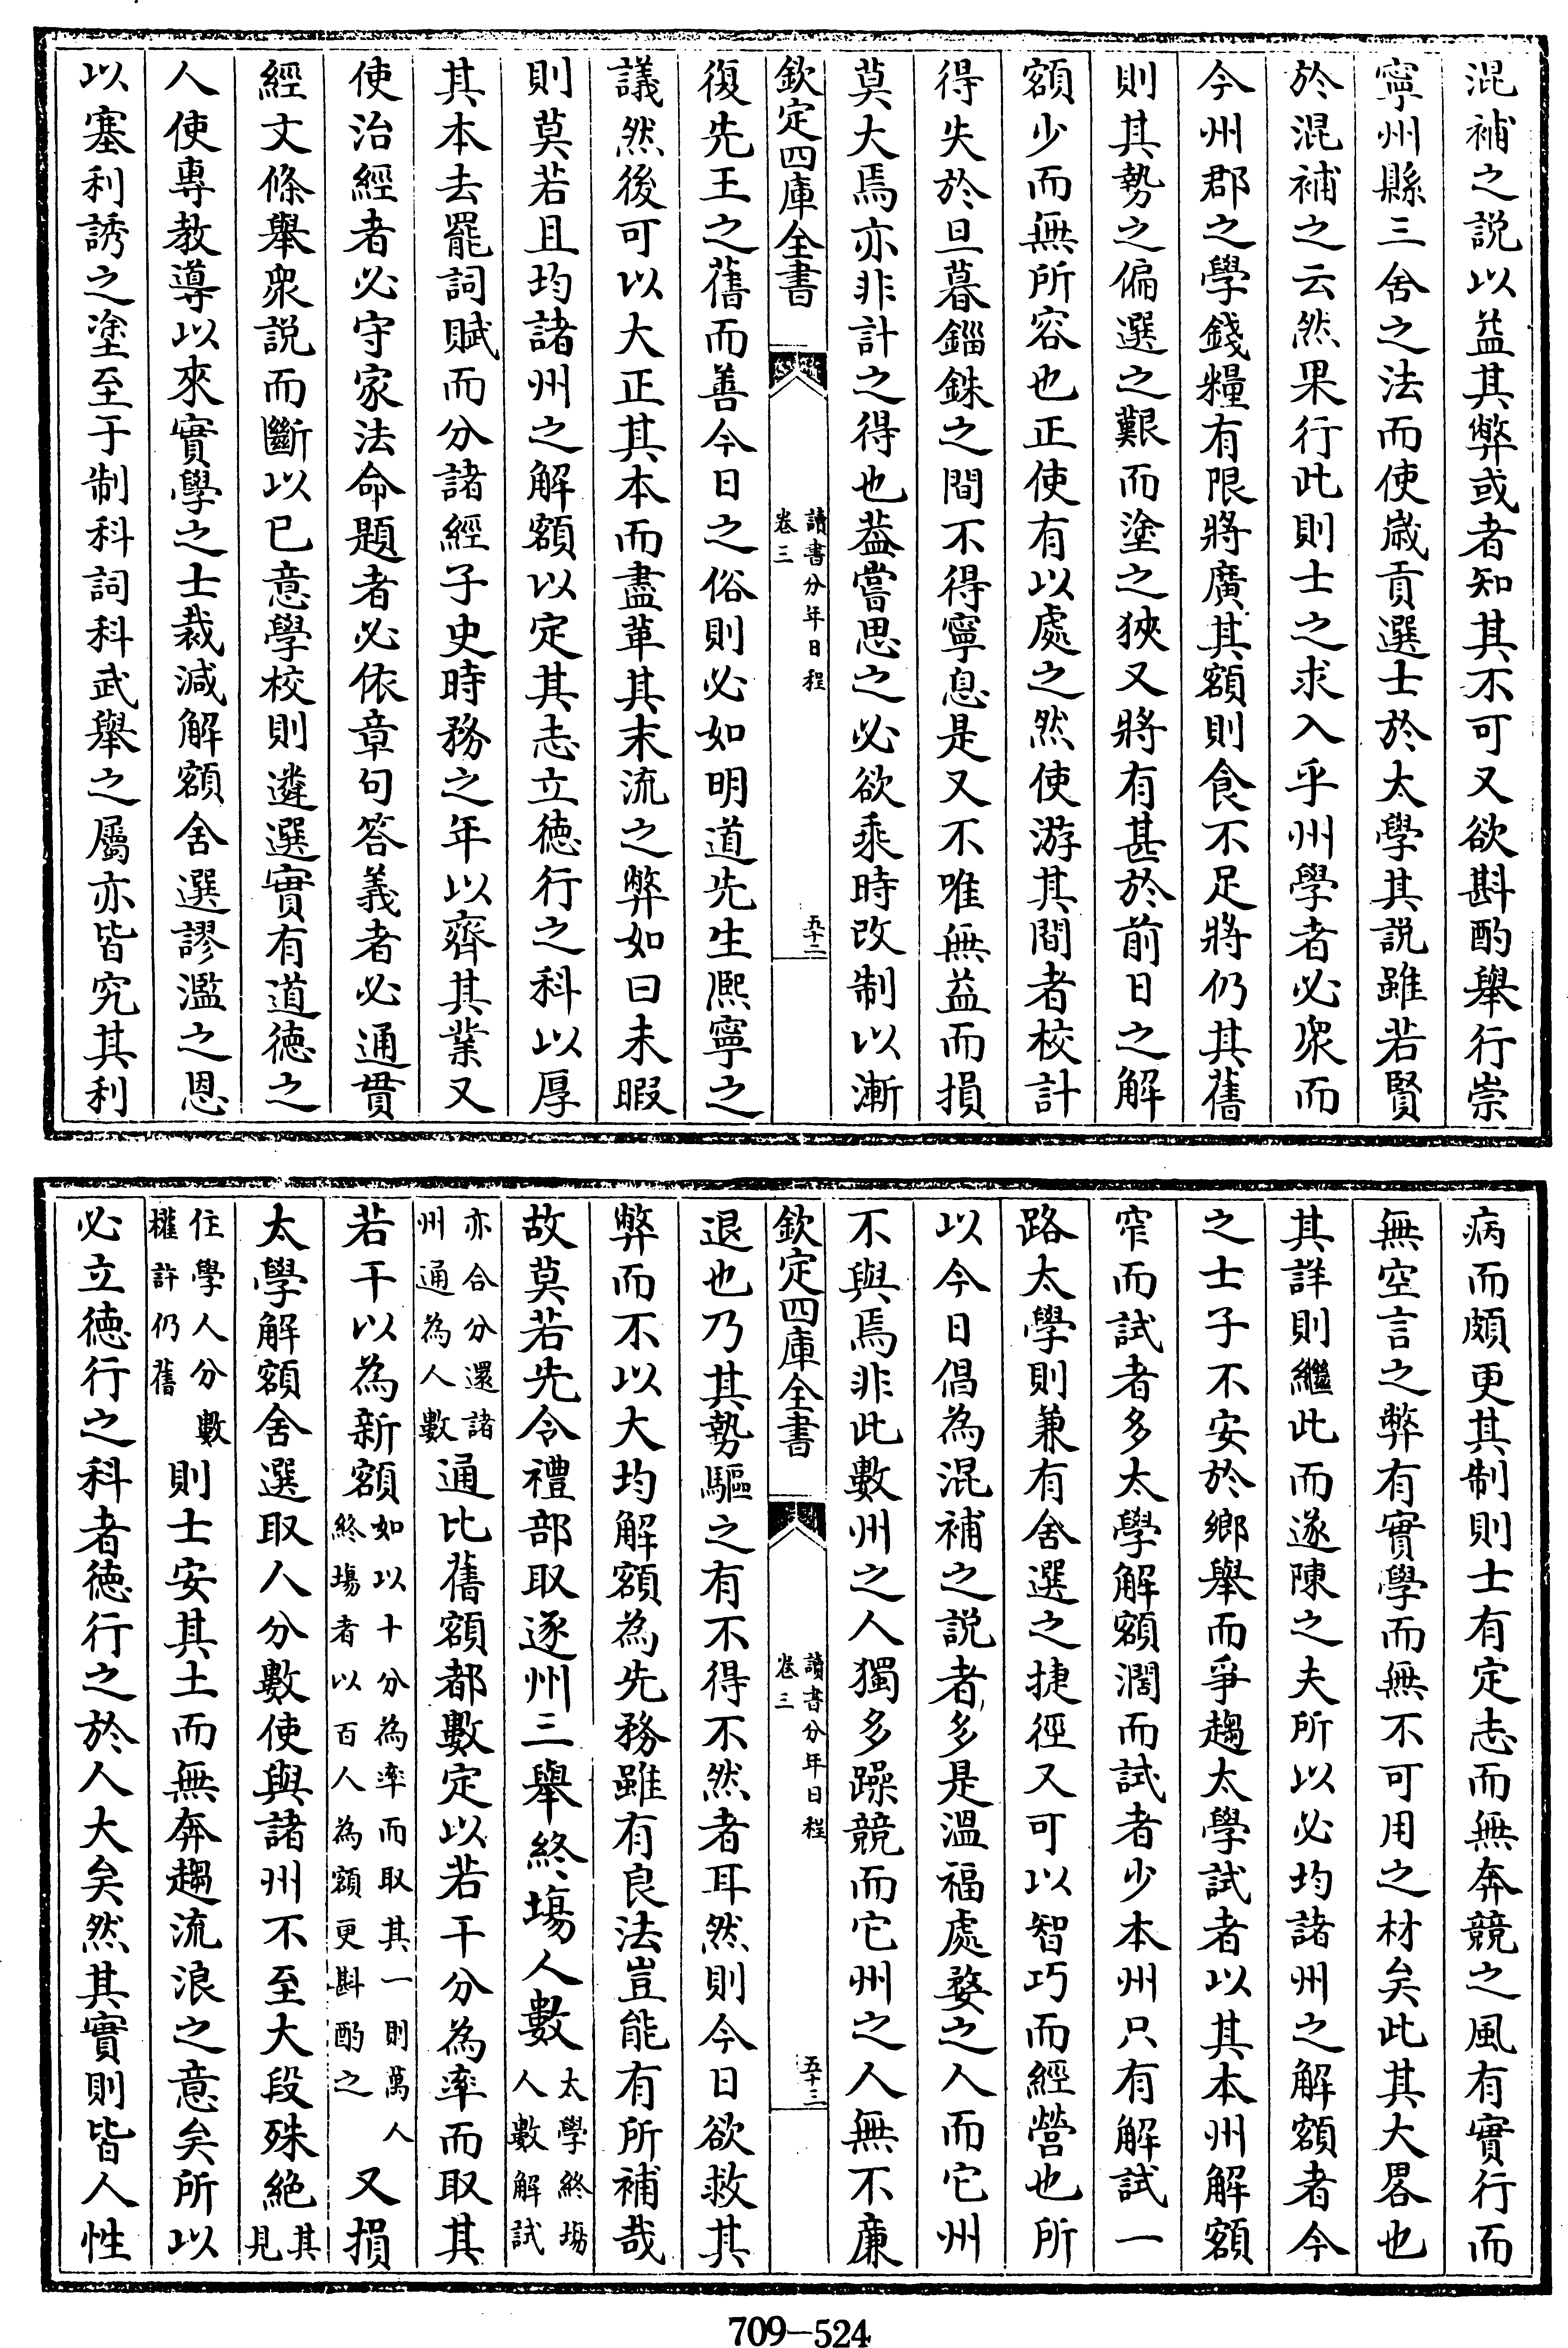 混補之説以益其弊或者知其不可又欲斟酌舉行崇
寧州縣三舍之法而使嵗貢選士於太學其説雖若賢
於混補之云然果行此則士之求入乎州學者必衆而
今州郡之學錢糧有限將廣其額則食不足將仍其舊
則其勢之偏選之艱而塗之狹又將有甚於前日之解
額少而無所容也正使有以處之然使游其間者校計
得失於旦暮錙銖之間不得寧息是又不唯無益而損
莫大焉亦非計之得也葢嘗思之必欲乘時改制以漸
欽定四庫全書
讀書分年日程
卷三
五十二
復先王之舊而善今日之俗則必如明道先生熈寧之
議然後可以大正其本而盡革其末流之弊如曰未暇
則莫若且均諸州之解額以定其志立徳行之科以厚
其本去罷詞賦而分諸經子史時務之年以齊其業又
使治經者必守家法命題者必依章句答義者必通貫
經文條舉衆説而斷以已意學校則遴選實有道徳之
人使專教導以來實學之士裁減解額舍選謬濫之恩
以塞利誘之塗至于制科詞科武舉之屬亦皆究其利
病而頗更其制則士有定志而無奔競之風有實行而
無空言之弊有實學而無不可用之材矣此其大畧也
其詳則繼此而遂陳之夫所以必均諸州之解額者今
之士子不安於鄉舉而爭趨太學試者以其本州解額
窄而試者多太學解額濶而試者少本州只有解試一
路太學則兼有舍選之捷徑又可以智巧而經營也所
以今日倡為混補之説者多是溫福處婺之人而它州
不與焉非此數州之人獨多躁競而它州之人無不廉
欽定四庫全書
讀書分年日程
卷三
五十三
退也乃其勢驅之有不得不然者耳然則今日欲救其
弊而不以大均解額為先務雖有良法豈能有所補哉
故莫若先令禮部取逐州三舉終塲人數太學終塲人數解試
亦合分還諸州通為人數通比舊額都數定以若干分為率而取其
若干以為新額如以十分為率而取其一則萬人終塲者以百人為額更斟酌之又損
太學解額舍選取人分數使與諸州不至大段殊絶其見
住學人分數權許仍舊則士安其土而無奔趨流浪之意矣所以
必立徳行之科者徳行之於人大矣然其實則皆人性
709—524